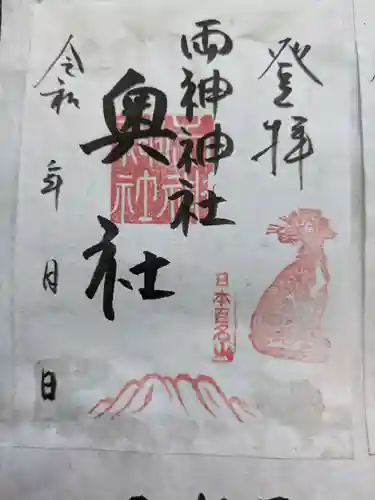 登拝
両神神社
奥社
日本百名山
令和 年 月 日